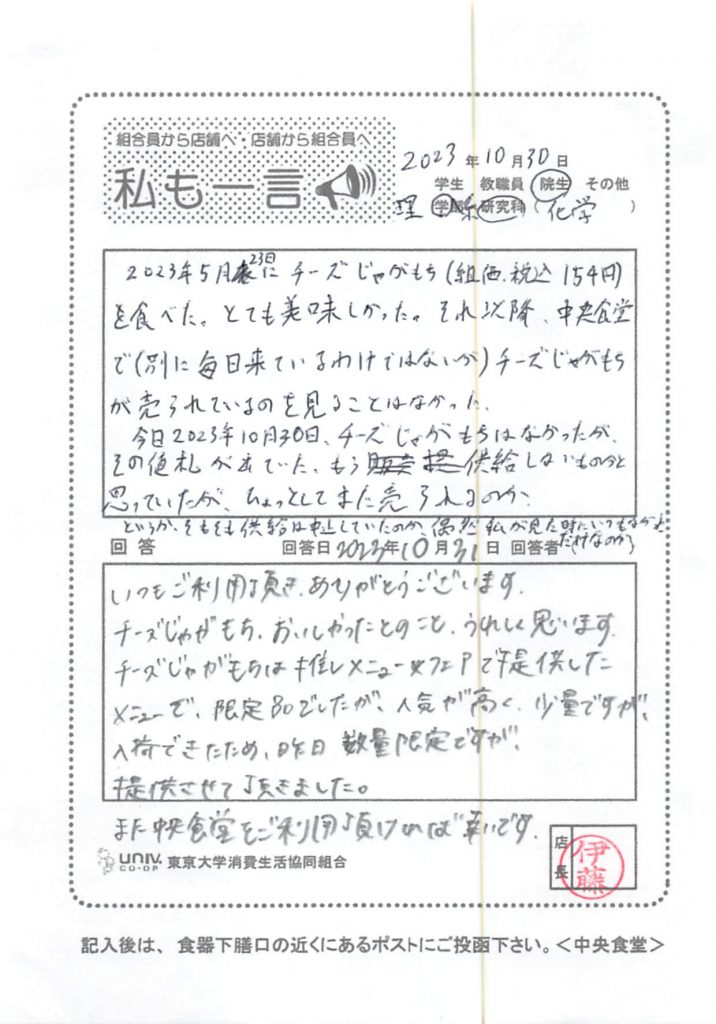 組合員から店舗へ・店舗から組合員へ
私も一言
2023年10月30日
学生 教職員 院生 その他
理 学部 系 研究科 ( 化学 )
2023年5月23日に チーズじゃがもち(組価、税込 154円)
を食べた。とても美味しかった。それ以降、中央食堂
で(別に毎日来ているわけではないが)チーズじゃがもち
が売られているのを見ることはなかった。
今日2023年10月30日、チーズじゃがもちはなかったが、
その値札が出ていた。もう供給しないものかと
思っていたが、ひょっとしてまた売られるのか。
というか、そもそも供給は中止していたのか、偶然私が見た時にいつもなかった
だけなのか?
回答 回答日 2023年10月31日 回答者
いつもご利用頂き、ありがとうございます。
チーズじゃがもち、おいしかったとのこと、うれしく思います。
チーズじゃがもちは推しメニューフェアで提供した
メニューで、限定でしたが、人気が高く、少量ですが、
入荷できたため、昨日 数量限定ですが、
提供させて頂きました。
また中央食堂をご利用頂ければ幸いです。
UNIV. CO-OP 東京大学消費生活協同組合
店長 伊藤
記入後は、食器下膳口の近くにあるポストにご投函下さい。<中央食堂>